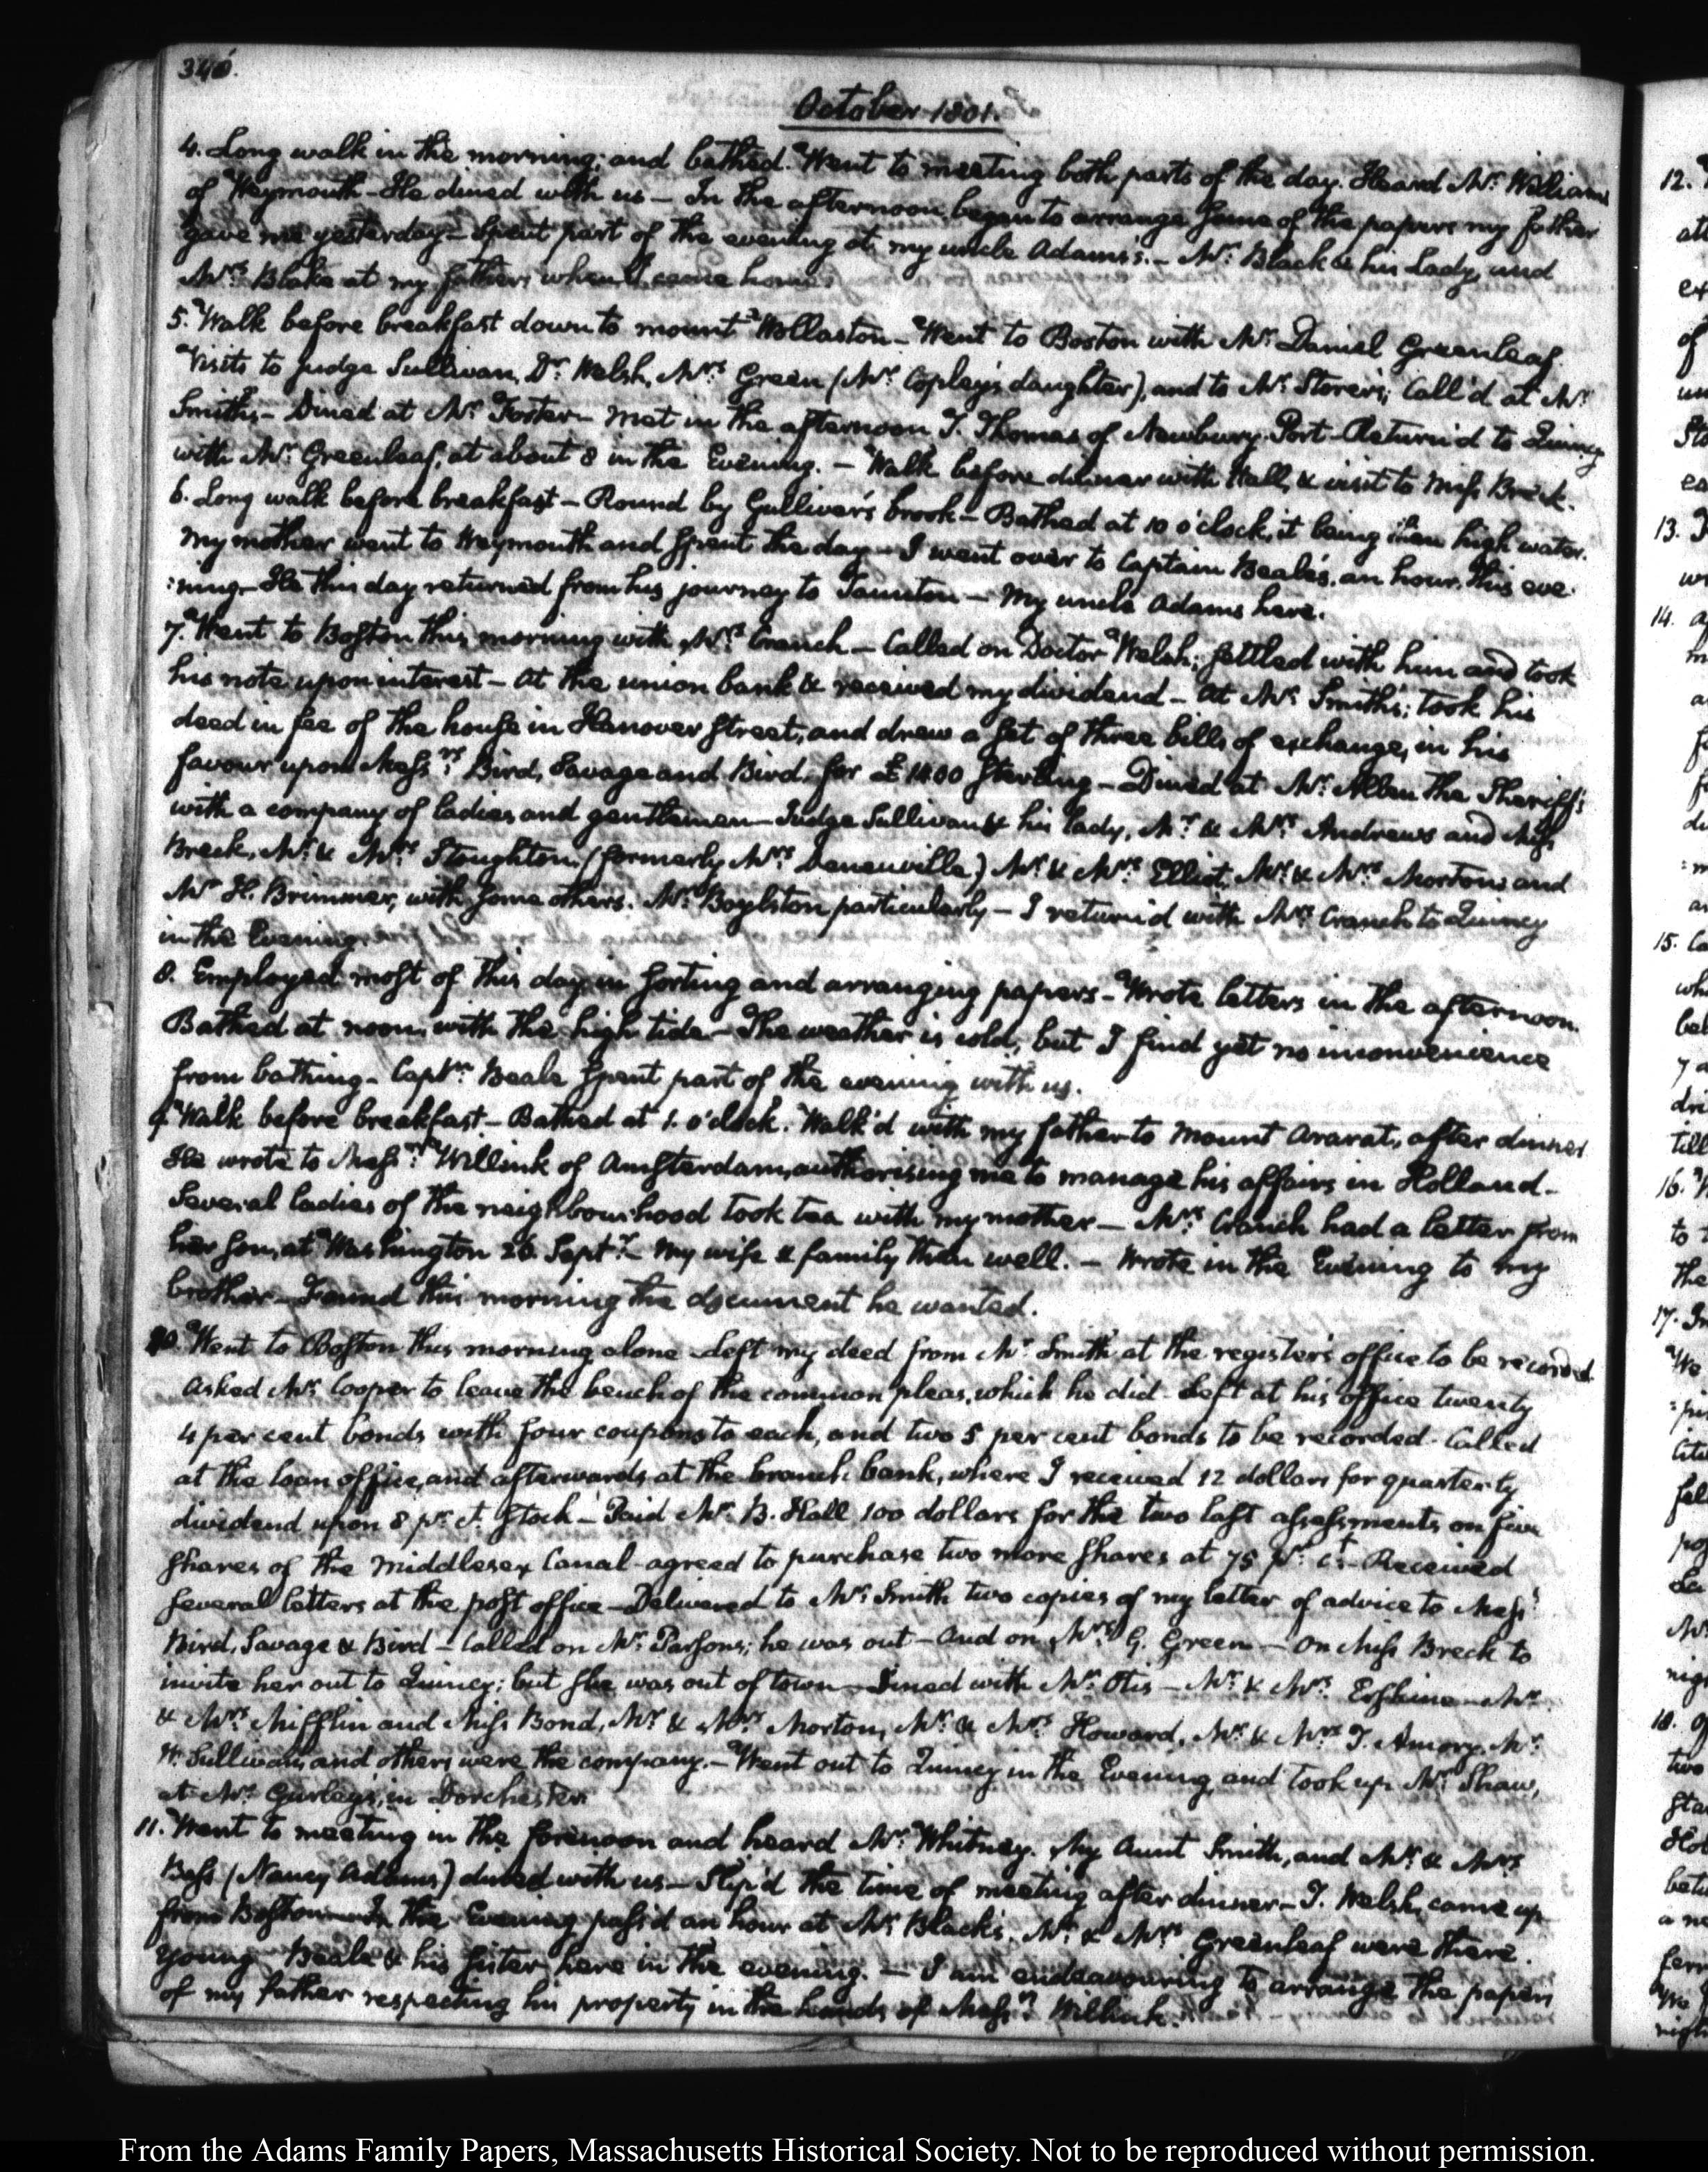 346.
October 1801.
4. Long walk in the morning; and bathed. Went to meeting both parts of the day. Heard Mr. Williams
of Weymouth – He dined with us – In the afternoon began to arrange some of the papers my father
gave me yesterday – Spent part of the evening at my uncle Adams's. – Mr. Black & his Lady, and
Mrs. Blake at my father's when I came home.
5. Walk before breakfast down to mount Wollaston – Went to Boston with Mr. Daniel Greenleaf.
Visits to Judge Sullivan, Dr. Welsh, Mrs. Green (Mr. Copley's daughter), and to Mr. Storer's; Call'd at Mr.
Smith's – Dined at Mr. Foster – Met in the afternoon J. Thomas of Newbury-Port – Return'd to Quincy
with Mr. Greenleaf, at about 8 in the Evening. – Walk before dinner with Hall, & visit to Miss Breck.
6. Long walk before breakfast – Round by Gulliver's brook – Bathed at 10 o'clock, it being then high water.
My mother went to Weymouth and spent the day – I went over to Captain Beale's, an hour, this eve-
:ning – He this day returned from his journey to Taunton – My uncle Adams here.
7. Went to Boston this morning with Mrs. Cranch – Called on Doctor Welsh; settled with him and took
his note upon interest – At the union bank & received my dividend – At Mr. Smith's; took his
deed in fee of the house in Hanover Street, and drew a set of three bills of exchange, in his
favour upon Messrs. Bird, Savage and Bird, for £ 1400 Sterling – Dined at Mr. Allen the Sheriff's
with a company of ladies and gentlemen – Judge Sullivan & his lady, Mr. & Mrs. Andrews and Miss
Breck, Mr. & Mrs. Stoughton, (formerly Mrs. ) Mr. & Mrs. Elliot, Mr. & Mrs. Morton and
Mr H. Brimmer, with some others. Mr. Boylston particularly – I return'd with Mrs. Cranch to Quincy
in the Evening.
8. Employed most of this day in sorting and arranging papers – Wrote letters in the afternoon.
Bathed at noon, with the high tide – The weather is cold, but I find yet no inconvenience
from bathing – Captn. Beale spent part of the evening with us.
9. Walk before breakfast – Bathed at 1. o'clock. Walk'd with my father to Mount Ararat, after dinner
He wrote to Messrs. Willink of Amsterdam, authorising me to manage his affairs in Holland –
Several ladies of the neighbourhood took tea with my mother – Mrs. Cranch had a letter from
her son, at Washington 26. Septr. – My wife & family then well. – Wrote in the Evening to my
brother – Found this morning the document he wanted.
10. Went to Boston this morning alone – Left my deed from Mr. Smith at the register's office to be recorded.
Asked Mr. Cooper to leave the bench of the common pleas, which he did – Left at his office twenty
4 per cent bonds with four coupons to each, and two 5 per cent bonds to be recorded – Called
at the loan office, and afterwards at the branch bank, where I received 12 dollars for quarterly
dividend upon 8 pr. ct. Stock – Paid Mr. B. Hall 100 dollars for the two last assessments on five
shares of the Middlesex Canal – agreed to purchase two more shares at 75 pr. ct. – Received
several letters at the post office – Delivered to Mr. Smith two copies of my letter of advice to Messrs.
Bird, Savage & Bird – Called on Mr. Parsons; he was out – And on Mrs. G. Green – On Miss Breck to
invite her out to Quincy; but she was out of town – Dined with Mr. Otis – Mr. & Mrs. Erskine – Mr.
& Mrs. Mifflin and Miss Bond, Mr. & Mrs. Morton, Mr. & Mrs. Howard, Mr. & Mrs. J. Amory, Mr.
W. Sullivan, and others were the company. – Went out to Quincy in the Evening, and took up Mr. Shaw,
at Mr. Gurley's, in Dorchester.
11. Went to meeting in the forenoon and heard Mr. Whitney. My Aunt Smith, and Mr. & Mrs.
Bass (Nancy Adams) dined with us – Slip'd the time of meeting after dinner – T. Welsh, came up
from Boston – In the Evening pass'd an hour at Mr. Black's. Mr. & Mrs. Greenleaf were there.
Young Beale & his sister here in the evening. – I am endeavouring to arrange the papers
of my father respecting his property in the hands of Messrs. Willink.
From the Adams Family Papers, Massachusetts Historical Society. Not to be reproduced without permission.